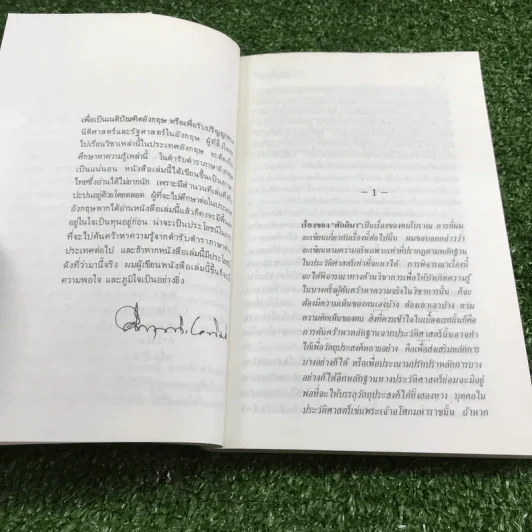 เพื่อเป็นเนติบัณฑิตอังกฤษ หรือเพื่อรับปริญญาทาง
นิติศาสตร์และรัฐศาสตร์ในอังกฤษ ผู้ที่ตั้งใจ
ไปเรียนวิชาเหล่านี้ในประเทศอังกฤษ จะต้อง
ศึกษาหาความรู้เหล่านี้ ในตำรับตำราภาษาอังกฤษ
เป็นแน่นอน หนังสือเล่มนี้ได้เขียนขึ้นเป็นภาษา
ไทยซึ่งอ่านได้ไม่ยากนัก เพราะมีสำนวนที่เล่นลิ้น
ปะปนอยู่ด้วยโดยตลอด ผู้ที่จะไปศึกษาต่อในประเทศ
อังกฤษหากได้อ่านหนังสือเล่มนี้แล้วก็คงจะมี
อยู่ในใจเป็นทุนอยู่ก่อน น่าจะเป็นประโยชน์ใน
ที่จะไปค้นคว้าหาความรู้จากตำรับตำราภาษา
ประเทศต่อไป และถ้าหากหนังสือเล่มนี้มีประโยชน์
ดังที่ว่ามานี้จริง ผมผู้เขียนหนังสือเล่มนี้ขึ้นก็จะ
ความพอใจ และภูมิใจเป็นอย่างยิ่ง
– 1 –
เรื่องของ "ศักดินา" เป็นเรื่องของคนโบราณ การที่ผม
จะเขียนเกี่ยวกับเรื่องนี้ต่อไปนั้น ผมขอบอกกล่าวว่า
จะเขียนตามความจริงเฉพาะเท่าที่ปรากฏตามหลักฐาน
ในประวัติศาสตร์เท่าที่จะหาได้ การพิจารณาเรื่องนี้
จะได้พิจารณาทางด้านวิชาการเพื่อให้บังเกิดความรู้
ในบางครั้งผู้ค้นคว้าหาความจริงในวิชาการนั้น ก็จะ
ต้องมีความเห็นของตนเองบ้าง ต้องเดาเอาบ้าง ตาม
ความคิดเห็นของตน สิ่งที่ควรเข้าใจในเบื้องแรกนั้นก็คือ
การค้นคว้าหาหลักฐานจากประวัติศาสตร์นั้นอาจทำ
ได้เพื่อวัตถุประสงค์หลายอย่าง คือเพื่อส่งเสริมหลักการ
บางอย่างก็ได้ หรือเพื่อประณามปรักปรำหลักการบาง
อย่างก็ได้อีกหลักฐานทางประวัติศาสตร์ย่อมจะมีอยู่
พอที่จะให้บรรลุวัตถุประสงค์ได้ทั้งสองทาง บุคคลใน
ประวัติศาสตร์เช่นพระเจ้าอโศกมหาราชนั้น ถ้าหาก